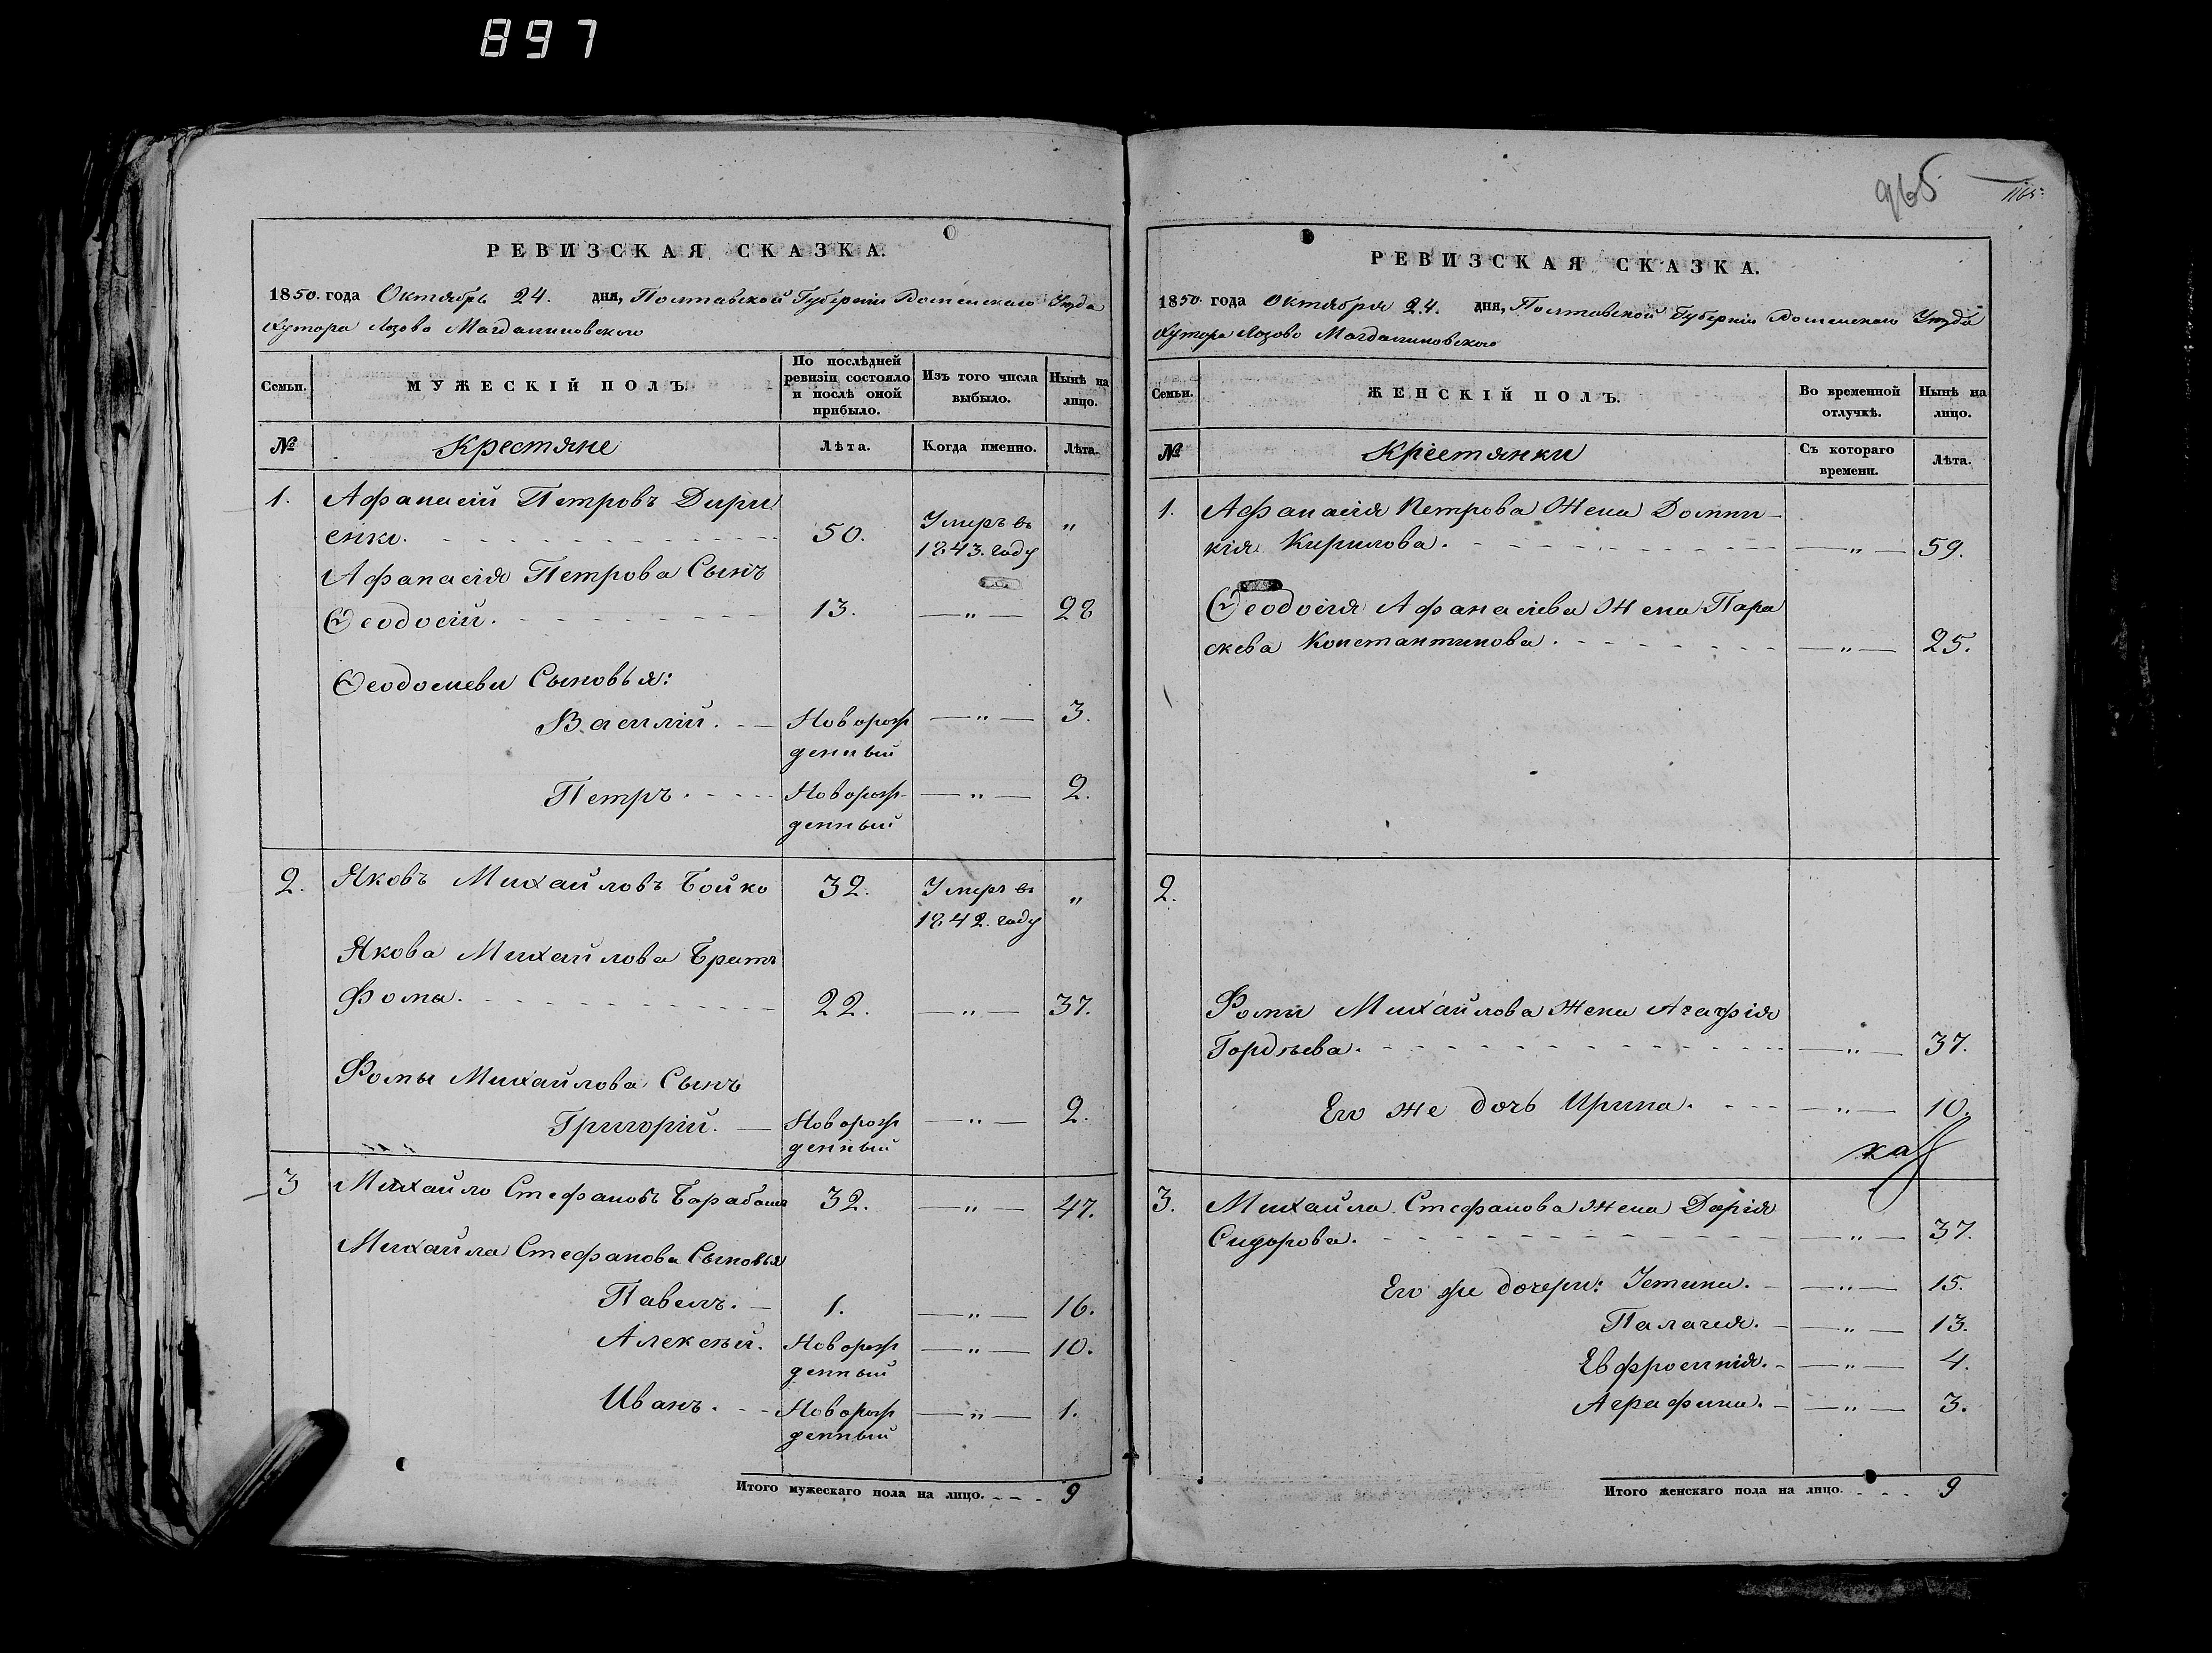 897
965
1165.
РЕВИЗСКАЯ СКАЗКА.
1850. года Октябрь 24. дня, Полтавской Губерніи Роменскаго Уезда
Хутора Лозово Магдалиновского
Семьи.
МУЖЕСКІЙ ПОЛЪ.
По послѣдней ревизіи состояло и послѣ оной прибыло.
Изъ того числа выбыло.
Нынѣ на лицо.
№
Крестяне
Лѣта.
Когда именно.
Лѣта.
1. Афанасій Петровъ Дири
енко. 50. Умеръ въ 1843. году "
Афанасія Петрова Сынъ
Ѳеодосій. 13. — " — 28
Ѳеодосиеви Сыновья:
Василій. — Новорож — " — 3.
денный
Петръ. Новорож- — " — 2.
денный
2. Яковъ Михайловъ Бойко 32. Умеръ въ 1842. году "
Якова Михайлова Братъ
Фома. 22. — " — 37.
Фомы Михайлова Сынъ
Григорій. — Новорож — " — 2.
денный
3 Михайло Стефановъ Барабаш 32. — " — 47.
Михайла Стефанова Сыновья
Павелъ. — 1. — " — 16.
Алексѣй. Новорож — " — 10.
денный
Иванъ. Новорож — " — 1.
денный
Итого мужескаго пола на лицо. 9
РЕВИЗСКАЯ СКАЗКА.
1850. года Октября 24. дня, Полтавской Губерніи Роменскаго Уезда
Хутора Лозово Магдалиновского
Семьи.
ЖЕНСКІЙ ПОЛЪ.
Во временной отлучкѣ.
Нынѣ на лицо.
№
Крiестянки
Съ котораго времени.
Лѣта.
1. Афанасія Петрова Жена Домни-
кія Кирилова. — " — 59.
Ѳеодосія Афанасіева Жена Пара
скева Константинова. — " — 25.
2.
Фомы Михайлова Жена Агафія
Гордѣева. — " — 37.
Его же дочь Ирина. — " — 10.
3. Михайла Стефанова Жена Дарія
Сидорова. — " — 37.
Его же дочери: Устина. — " — 15.
Палагия. — " — 13.
Евфросинія. — " — 4.
Аграфина. — " — 3.
Итого женскаго пола на лицо. 9